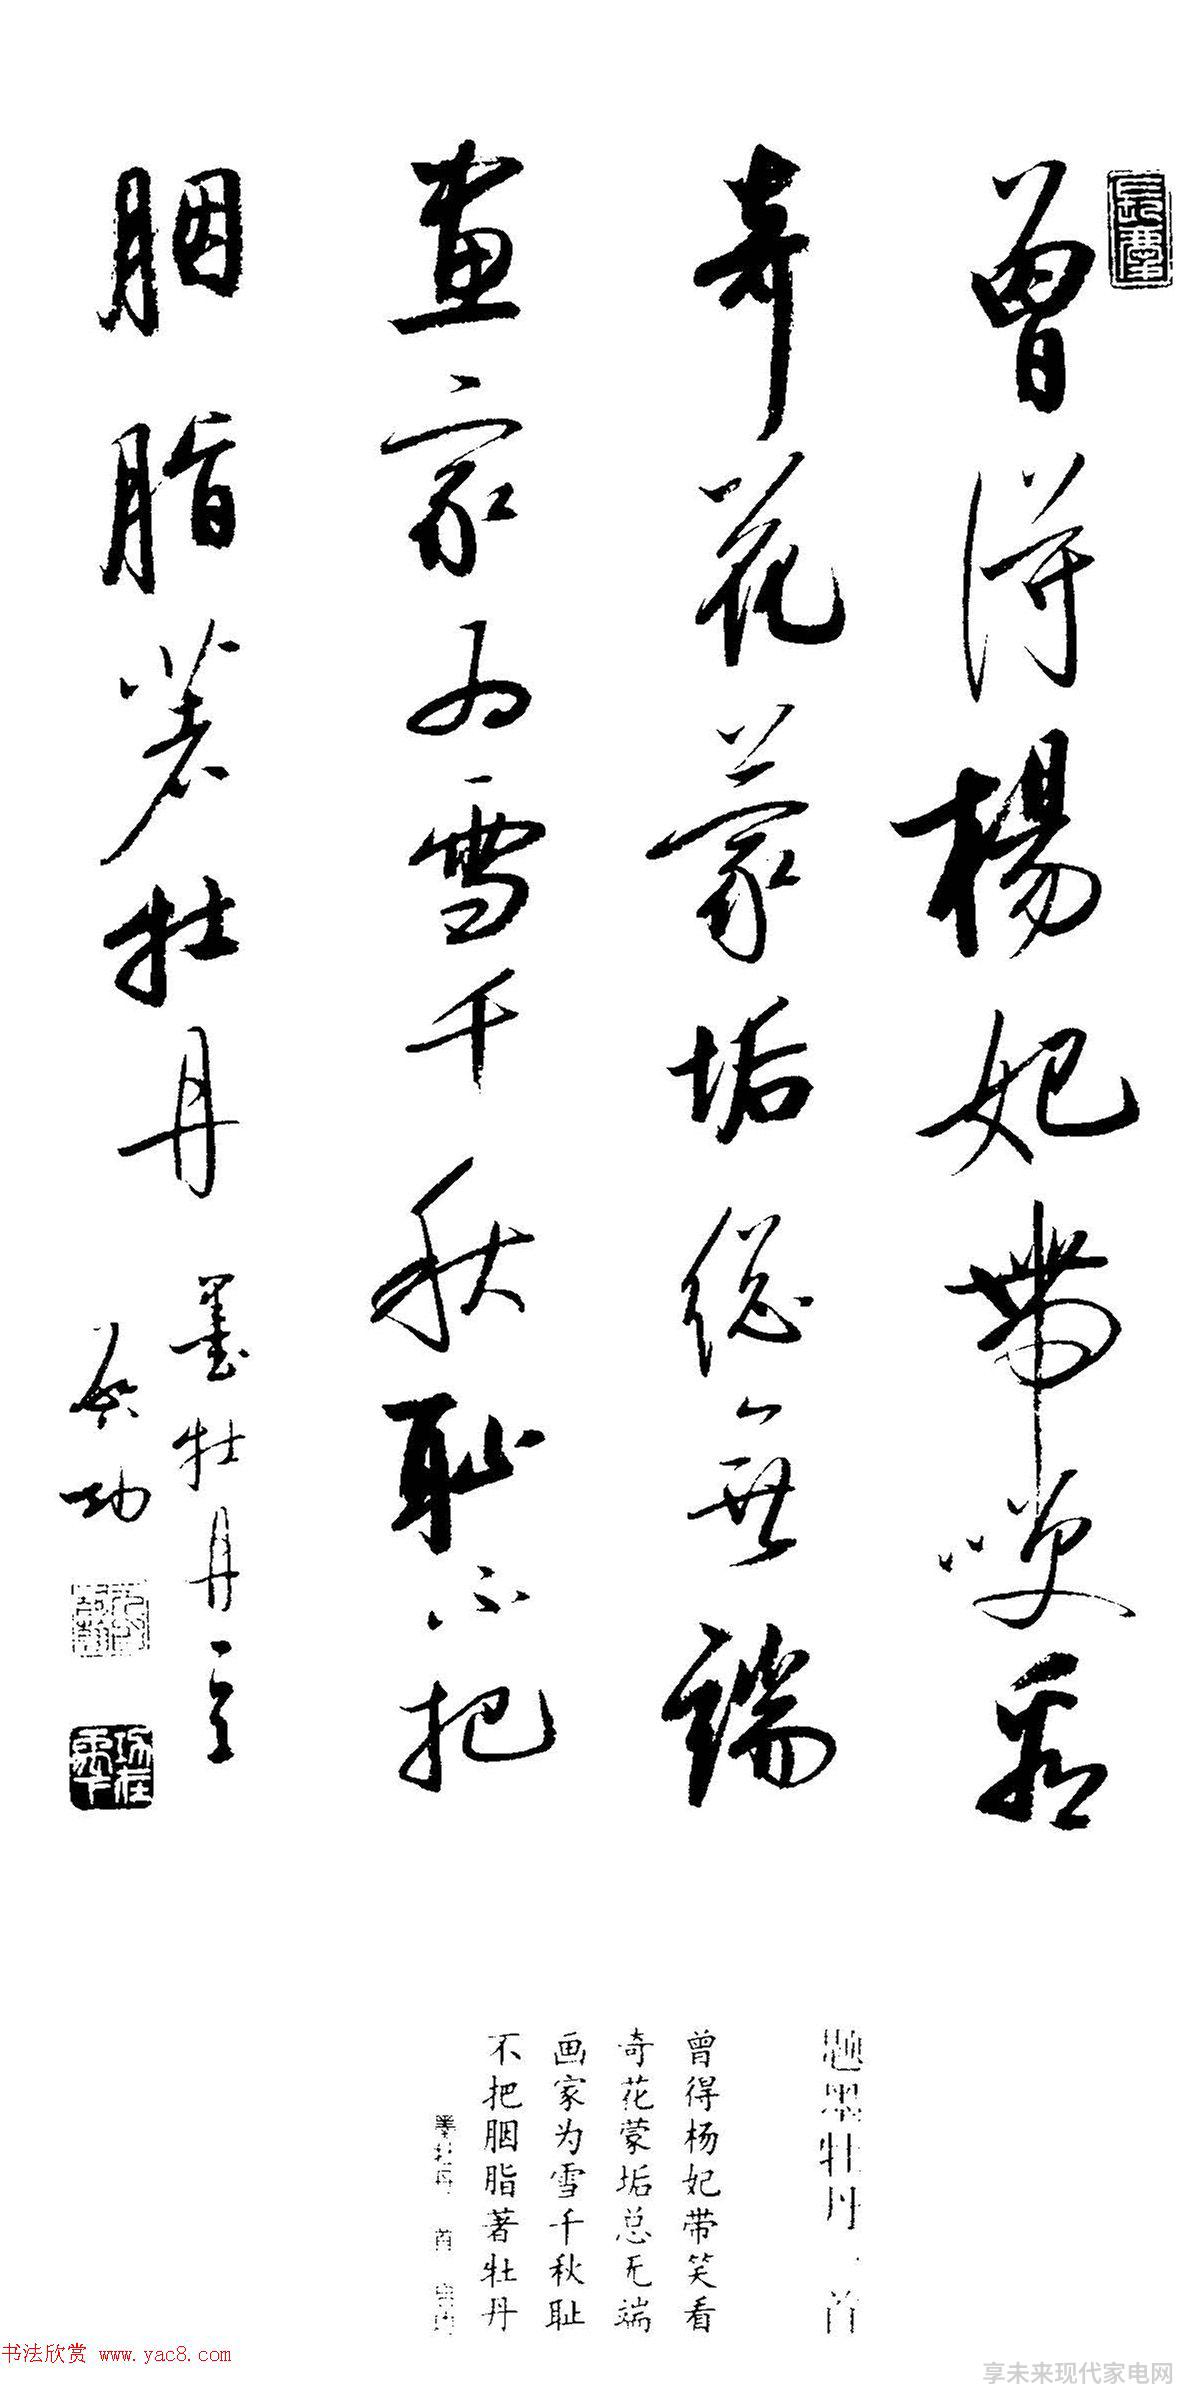 曾得楊妃帶咲看
奇花蒙垢總無端
畫家為雪千秋恥不把
胭脂著牡丹
墨牡丹一首
啟功
题墨牡丹一首
曾得杨妃带笑看
奇花蒙垢总无端
画家为雪千秋耻
不把胭脂著牡丹
墨牡丹 首
书法欣赏 www.yac8.com
享未来现代家电网